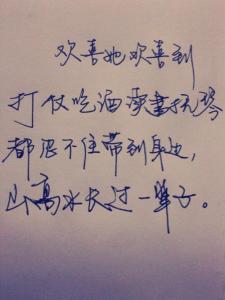 欢喜她欢喜到
打仗吃酒读書抚琴
都忍不住带到身边，
山高水长过一辈子。